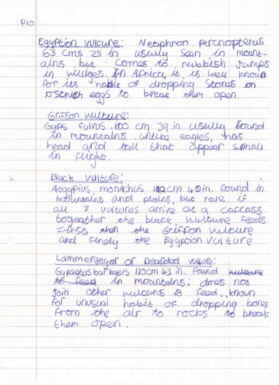 Egyptian Vulture: Neophron percnopterus
63 cms 25 in usually seen in mount-
ains but comes to rubbish dumps
in villages. In Africa it is well known
for its habit of dropping stones on
ostrich eggs to break them open
Griffon Vulture:
Gyps fulvus 100 cm 39 in usually found
in mountains unlike eagles, has
head and tail that appear small
in flight.
Black Vulture:
Aegypius monachus cm in. found in
mountains and plains, but rare if
all 3 vultures arrive at a carcass
together the black vulture feeds
first then the Griffon vulture
and finely the Egyptian vulture
Lammergeyer or Bearded Vulture:
Gypaetus barbatus cm in. Found
to feed in mountains; does not
join other vultures to feed, known
for unusual habit of dropping bones
from the air to rocks to break
them open.